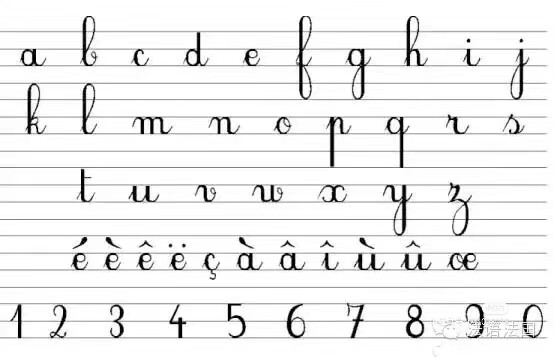 a b c d e f g h i j
k l m n o p q r s
t u v w x y z
é è ê ë ç à â î ù û œ
1 2 3 4 5 6 7 8 9 0
法语法国